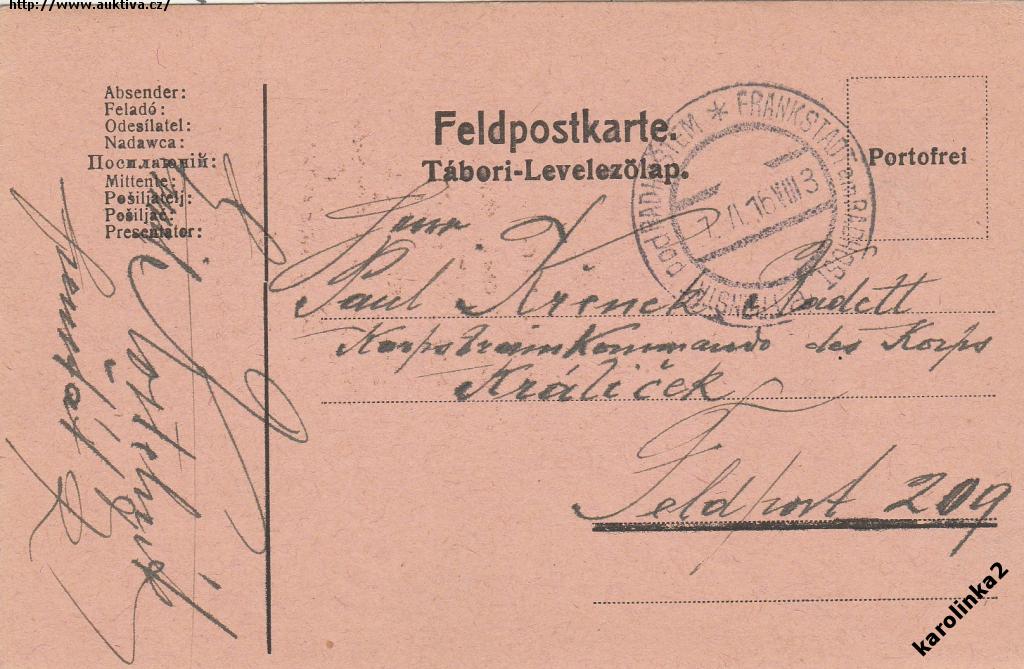 http://www.auktiva.cz/
Absender:
Feladó:
Odesílatel:
Nadawca:
Посилаючий:
Mittente:
Pošiljatelj:
Pošiljač:
Presentator:
Feldpostkarte.
Tábori-Levelezőlap.
Portofrei
FRANKSTADT am RADHOST
pod RADHOŠTEM
7. II. 16 VIII 3
Herr
Paul Křenek Kadett
Korpstrainkommando des Korps
Králiček
Feldpost 209
karolinka2